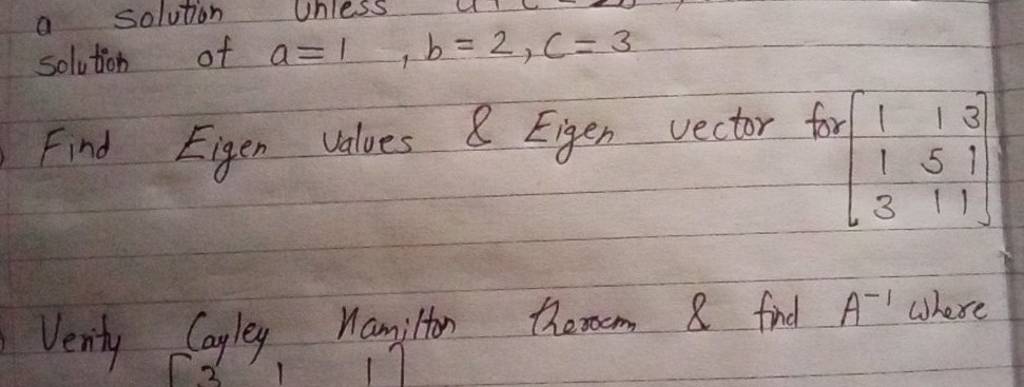 a solution Unless
solution of a=1 , b=2, C=3
Find Eigen values & Eigen vector for [ 1 1 3
1 5 1
3 1 1 ]
Verify Cayley Hamilton therocm & find A⁻¹ where
[ 3 1 1 ]